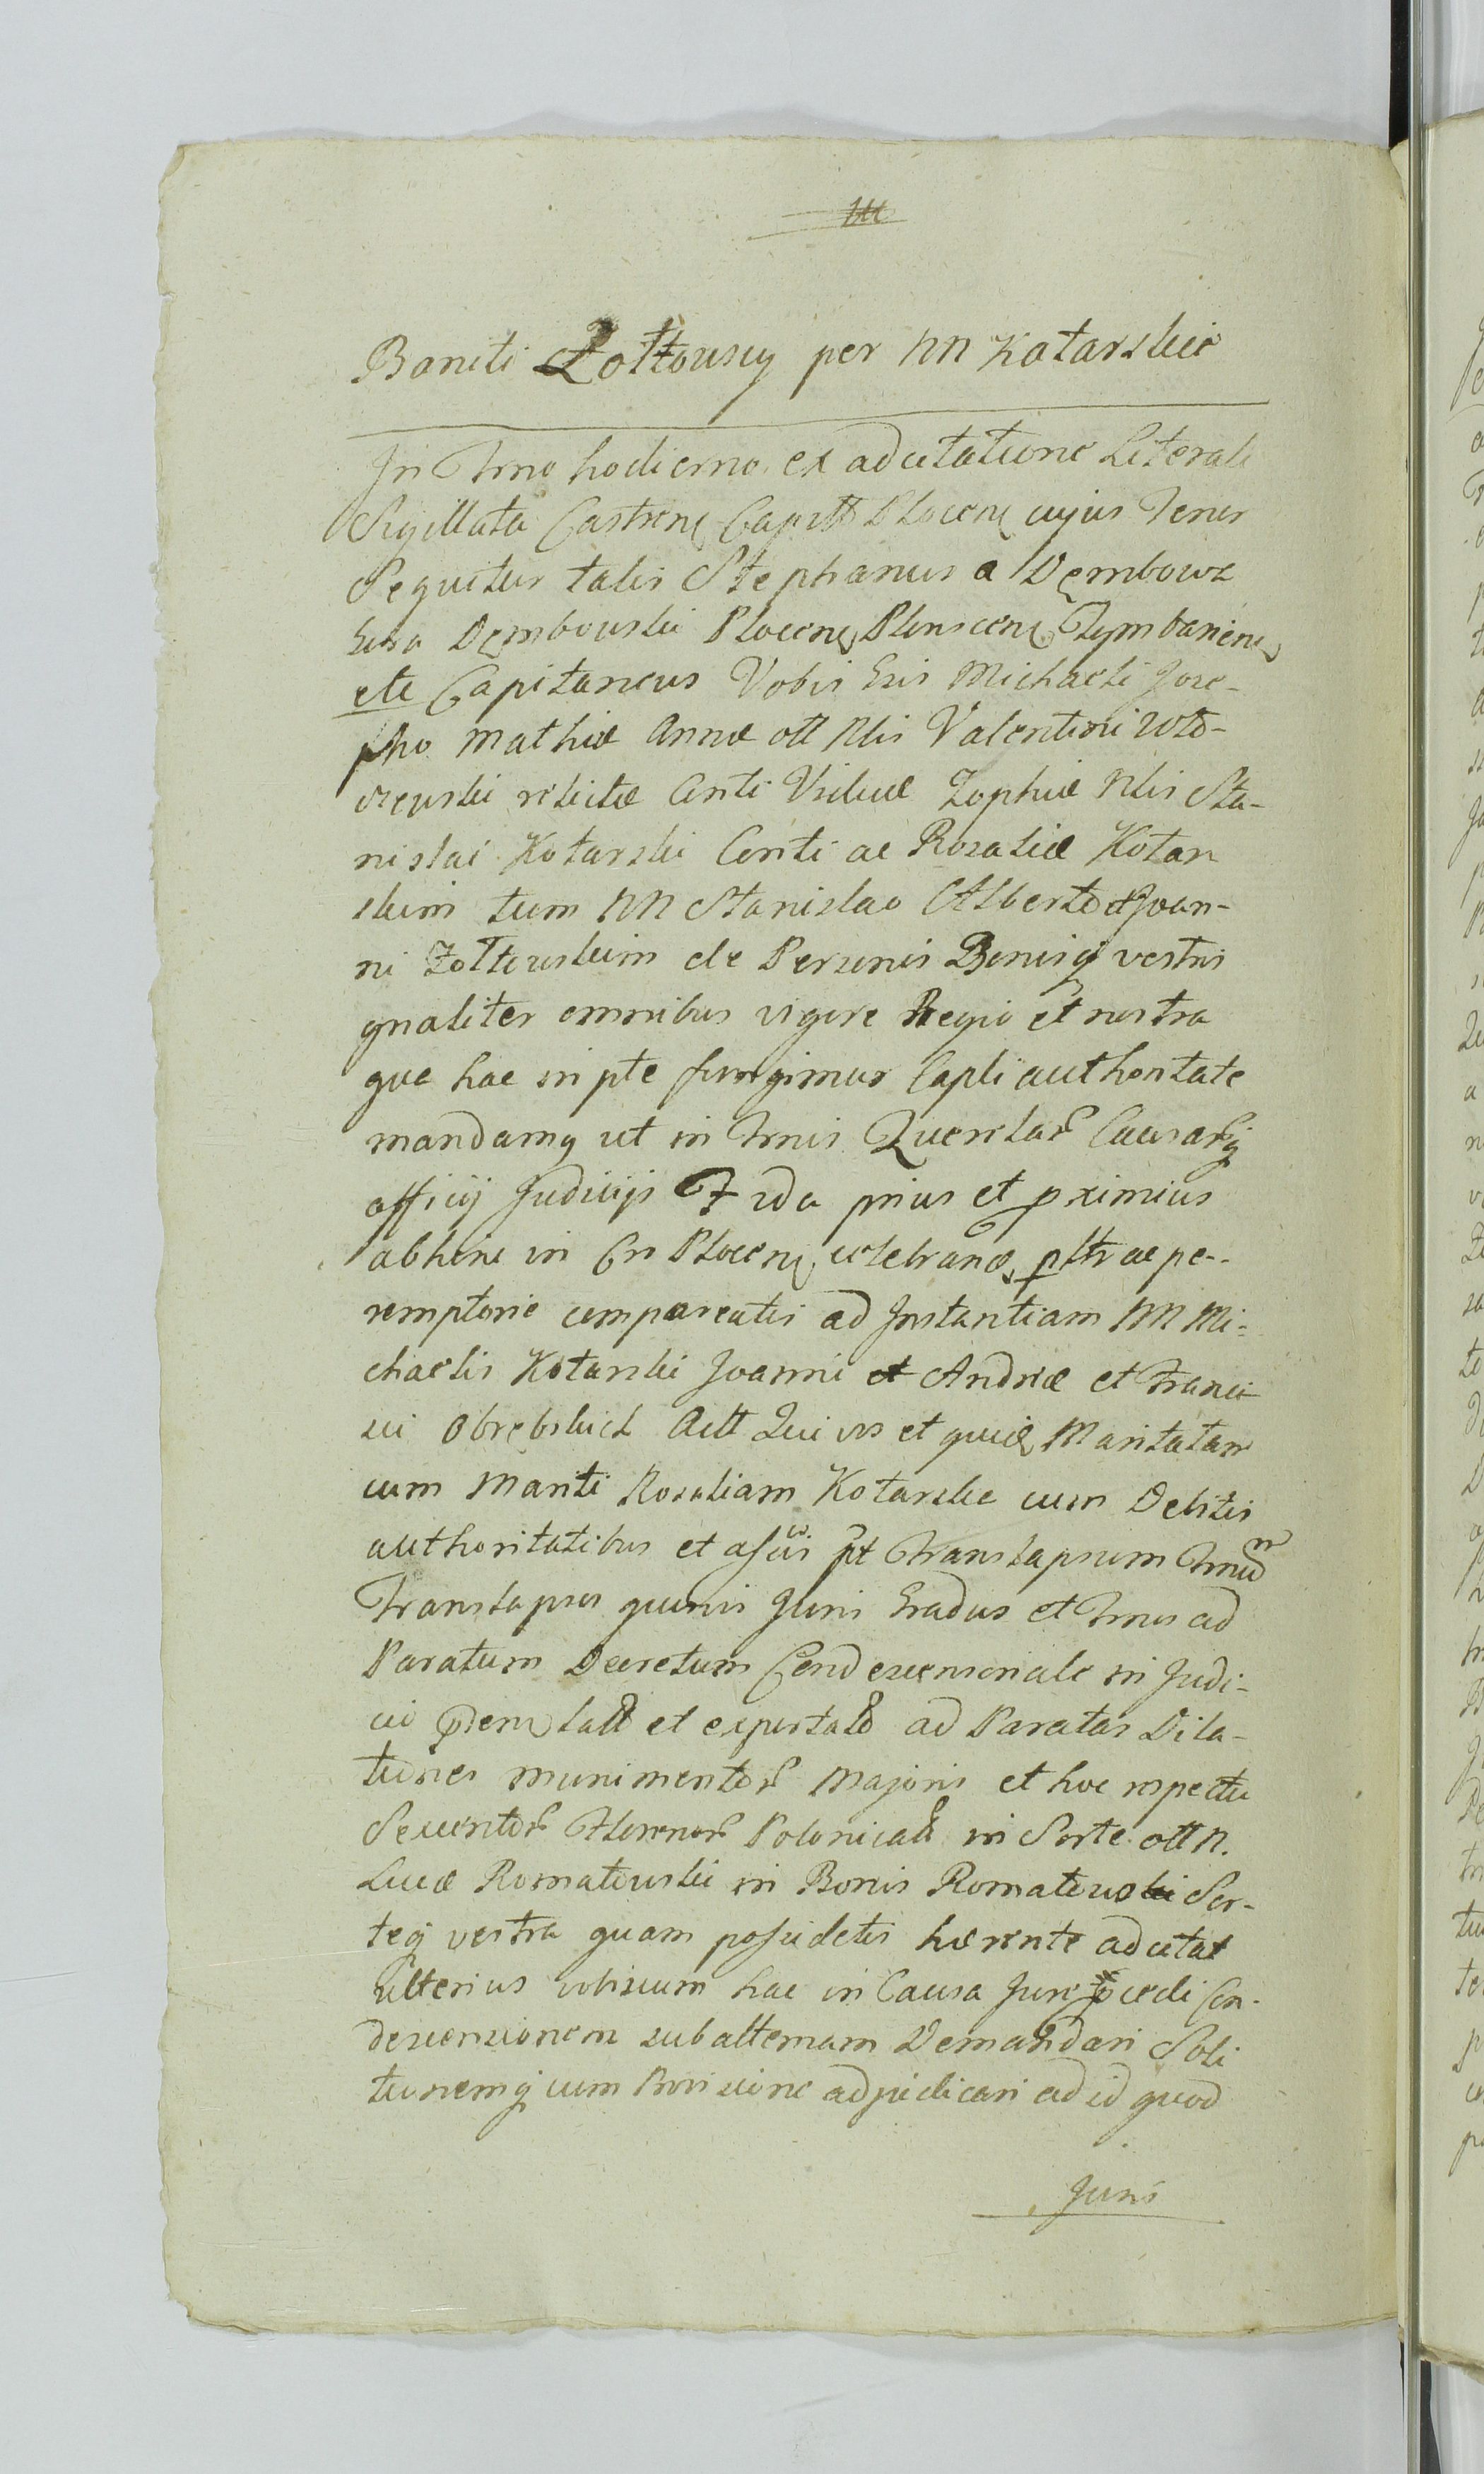 Baniti Żołtowscy per NN Kotarskie
In Trno hodierno ex adcitatione Literali
Sigillata Castren Capitli Plocen cujus Tenor
Sequitur talis Stephanus a Dembowa
Gura Dembowski Plocen Plonscen Tymbarien
etc Capitaneus Vobis Gris Michaeli Jose-
pho Mathiæ Annæ olt Nlis Valentini
relictæ Conti Viduæ Zophiæ Nlis Sta-
nislai Kotarski Conti ac Rosaliæ Kotar
skim tum NN Stanislao Alberto et Joan-
ni Żołtowskim de Personis Bonisq vestris
gnaliter omnibus vigore Regio et nostra
qua hac in pte fungimur Capli authoritate
mandamq ut in Trnis Querelar Causarq
officij Judicijs F ıda prius et pximius
abhinc in Cn Plocen celebrand pltr ac pe-
remptorie compareatis ad Instantiam NN Mi-
chaelis Kotarski Joannis et Andreæ et Franci
sci Obrębskich Actt Qui vos et quid Maritatam
cum Marito Rosaliam Kotarskie cum Debitis
authoritatibus et assis pt Translapsum Trnum
Translapsos quinis Juris Gradus et Trnos ad
Paratum Decretum Condescensoriale in Judi-
cio pden latt et exportatt ad Paratas Dila-
tiones munimentor Majoris et hoc respectu
Secentor Florenor Polonicall in Sorte olt N.
Lucæ Romatowski in Bonis Romatowski Sor-
teq vestra quam possidetis hærente adcitat
ulterius vobiscum hac in Causa Jure pcedi Con-
descensionem subalternam Demandari Soli
tionemq cum Provisione adjudicari ad id quod
Juris